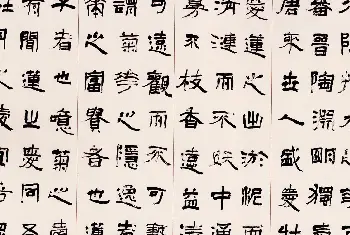 蕃晉陶淵明獨
唐來世人盛愛牡
愛蓮之出淤泥而
清漣而不妖中通
蔓不枝香遠益
可遠觀而不可褻
謂菊花之隱逸者
之富貴者也
子者也噫菊之愛
有聞蓮之愛同予